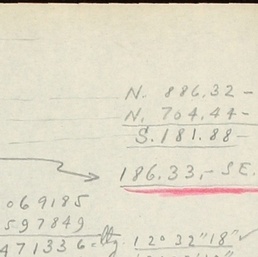 N. 886.32 -
N. 704.44 -
S. 181.88 -
186.33,- S E.
069185
597849
471336 = 
120 32" 18"